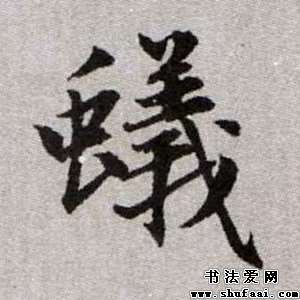 蟻
书法爱网
www.shufaai.com